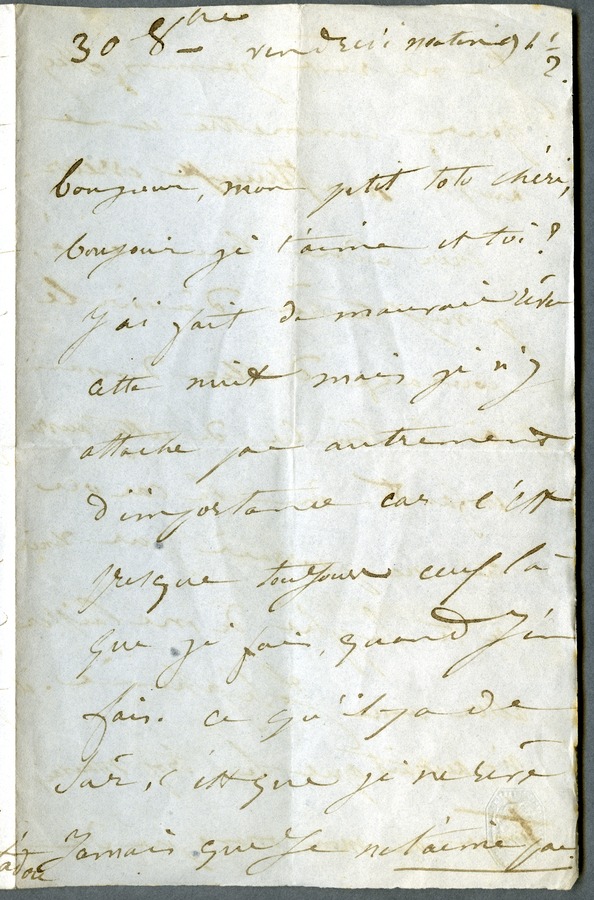 30 8bre vendredi matin 9h ½.
bonjour, mon petit toto chéri,
bonjour je t'aime et toi?
J'ai fait de mauvais rêve
cette nuit mais je n'y
attache pas autrement
d'importance car c'est
presque toujours ceux là
que je fais, quand j'en
fais. ce qu'il y a de
sûr, c'est que je ne rêve
Jamais que Je ne t'aime pas.